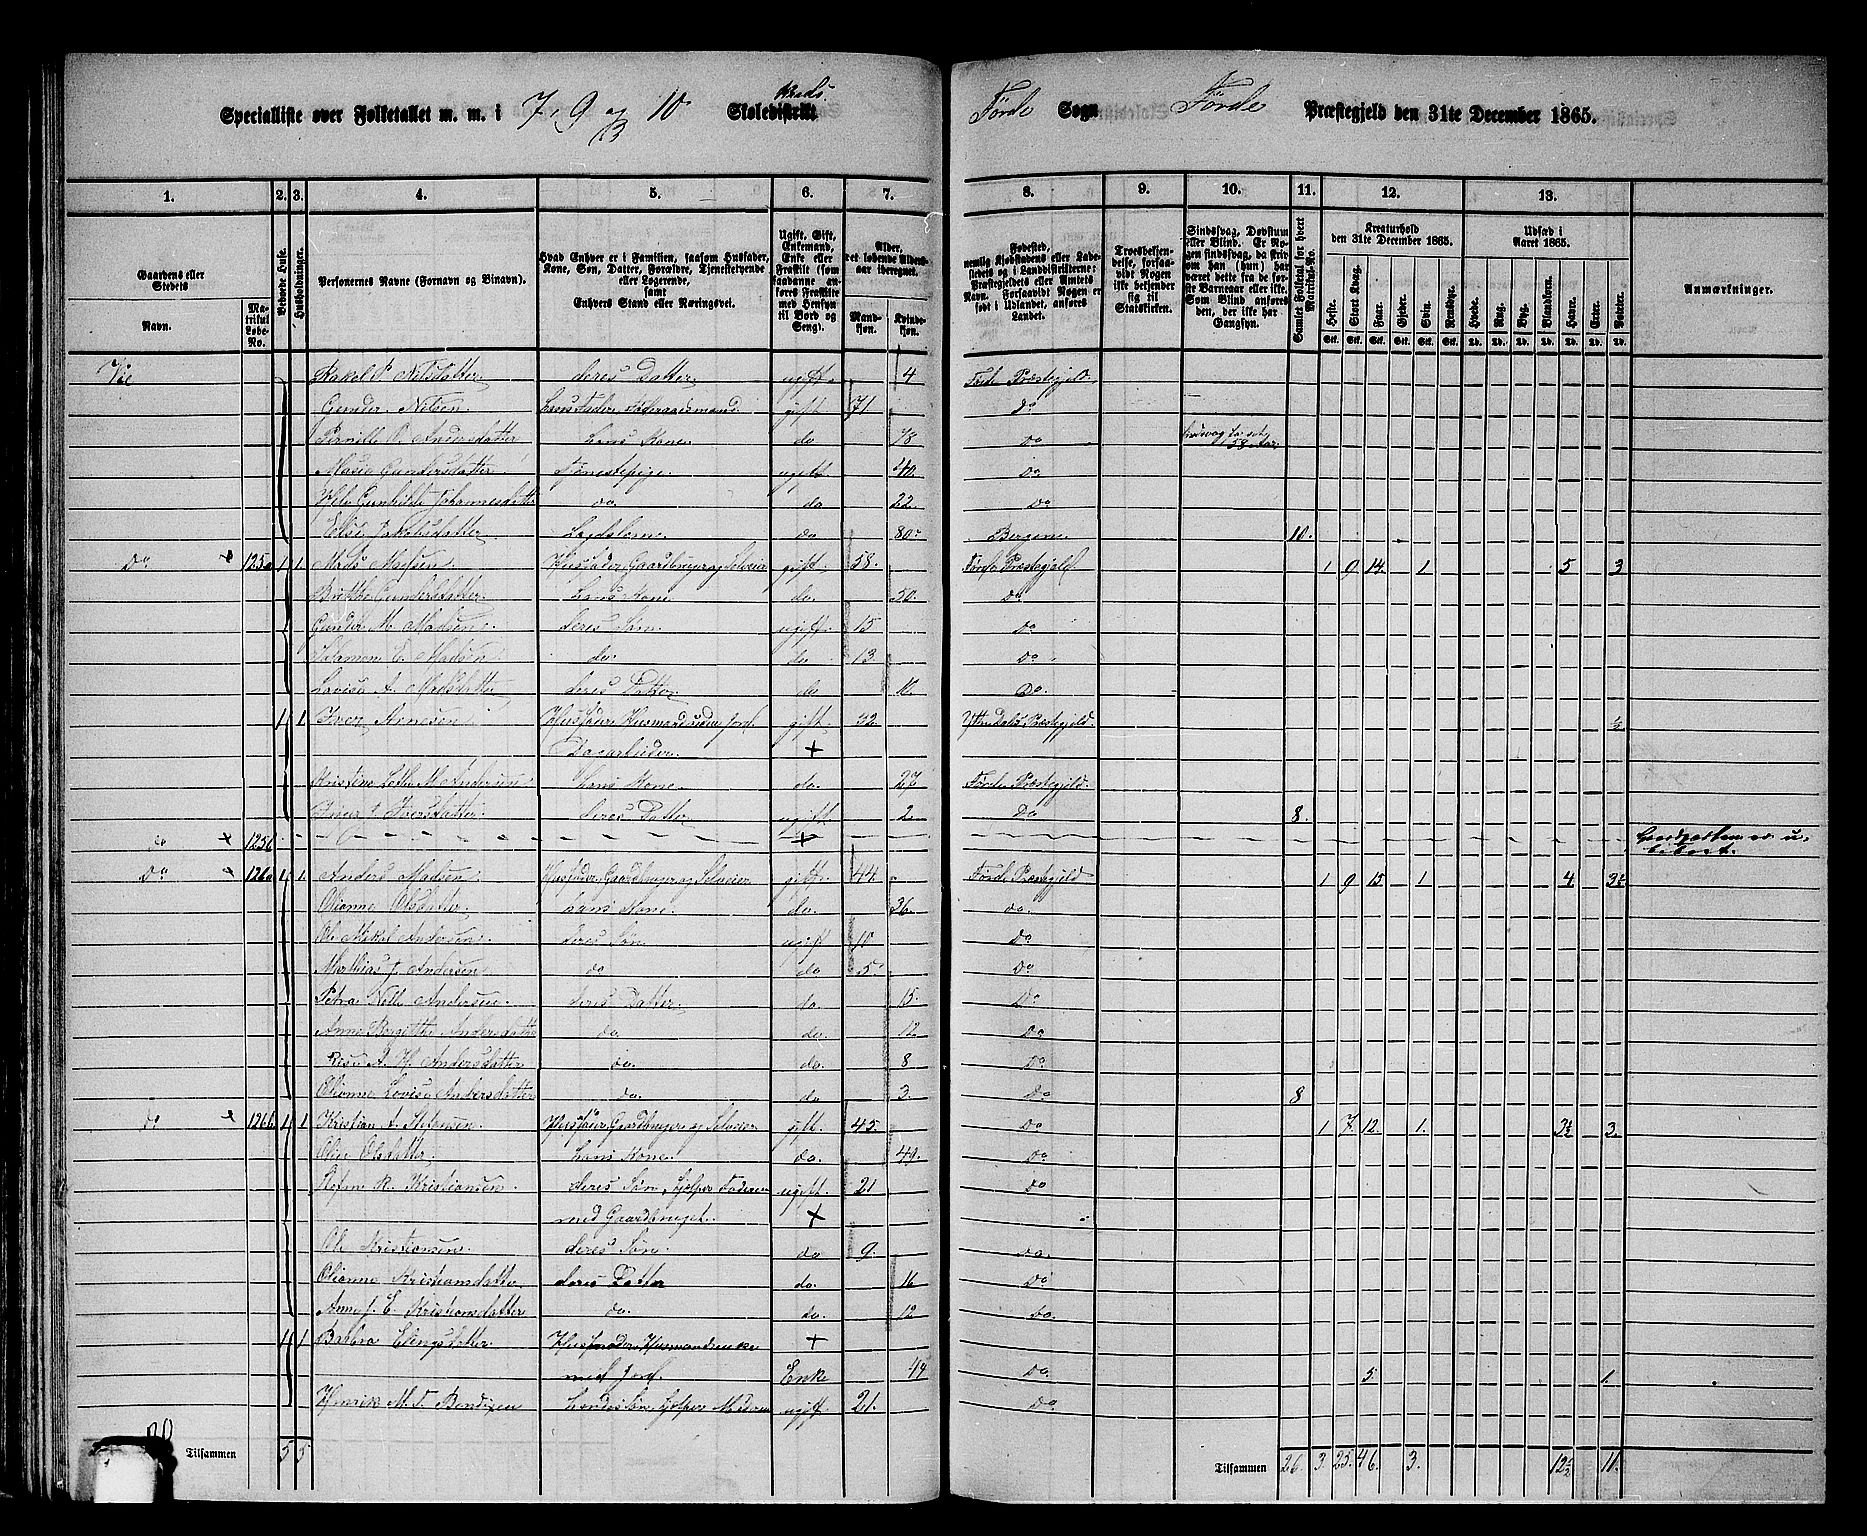 Specialliste over Folketallet m. m. i 7, 9 og 10 Kreds Skoledistrikt Førde Sogn Førde Præstegjeld den 31te December 1865.
13
1. 2. 3. 4. 5. 6. 7. 8. 9. 10. 11. 12. 13.
Gaardens eller Stedets
Navn. Matrikul Løbe-No.
Beboede Huse.
Husholdninger.
Personernes Navne (Fornavn og Binavn).
Hvad Enhver er i Familien, saasom Husfader, Kone, Søn, Datter, Forældre, Tjenestetyende eller Logerende, samt Enhvers Stand eller Næringsvei.
Ugift, Gift, Enkemand, Enke eller Fraskilt (som saadanne anføres Fraskilte med Hensyn til Bord og Seng).
Alder, det løbende Aldersaar iberegnet.
Mandkjøn. Kvindekjøn.
Fødested, nemlig Kjøbstadens eller Ladestedets og i Landdistrikterne: Præstegjeldets eller Amtets Navn. Forsaavidt Nogen er født i Udlandet, anføres Landet.
Troesbekjendelse, forsaavidt Nogen ikke bekjender sig til Statskirken.
Sindssvag, Døvstum eller Blind. Er Nogen sindssvag, da skriv om han (hun) har været dette fra de første Barneaar eller ikke. Som Blind anføres den, der ikke har Gangsyn.
Samlet Folketal for hvert Matrikul-No.
Kreaturhold den 31te December 1865.
Heste. Stort Kvæg. Faar. Gjeder. Svin. Rensdyr.
Udsæd i Aaret 1865.
Hvede. Rug. Byg. Blandkorn. Havre. Erter. Poteter.
Anmærkninger.
Vie Rakel P. Nilsdatter deres Datter ugift 4 Førde Præstegjeld.
Gunder Nilsen hans Fader, Føderaadsmand gift 71 Do
Pernille O. Andersdatter hans Kone do 78 Do
Marie Gundersdatter Tjenestepige ugift 40 Do
Gunhilde Johannesdatter do do 22 Do
Else Jakobsdatter Lægdslem do 80 Bergen 10.
Do 125a 1 1 Mads Madsen Husfader, Gaardbruger og Selveier gift 58. Førde Præstegjeld 1 9 14 1 5 3
Birthe Gundersdatter hans Kone do 50. Do
Gunder M. Madsen deres Søn ugift 15 Do
Salamon E. Madsen do do 13. Do
Lovise A. Madsdatter deres Datter do Do.
1 1 Iver Arnesen Husfader, Husmand uden Jord gift 32 Yttredals Præstegjeld ½
Dagarbeider. +
hans Kone. do. 27 Førde Præstegjeld.
Iversdatter deres Datter ugift 2 Do 8.
do 125b +
Do 126a 1 1 Anders Madsen Husfader, Gaardbruger og Selveier gift 44. Førde Præstegjeld 1 9 15 1 4 3½
Olianne Olsdatter hans Kone. do. 36. do.
Ole Mikal Andersen deres Søn ugift 10 Do
Mathias J. Andersen do do 5 Do
Petra Andersen deres Datter do 15. Do
Anne Birgitthe Andersdatter do do. 12 Do
A. H. Andersdatter do. do. 8 Do
Olianne Lovise Andersdatter do. do 3. Do 8
Do 126b. 1 1 Kristian A. Stefansen Husfader, Gaardbruger og Selveier gift. 45. Do 1 7 12. 1. 3½ 3.
Oline Olsdatter hans Kone. do. Do
Stefen R. Kristiansen deres Søn, hjelper Faderen ugift. 21 Do
med Gaardbruget. +
Ole Kristiansen deres Søn do 9. Do.
Olianne Kristiansdatter deres Datter do. 16 Do
Anne J. E. Kristiansdatter do. do 12 Do.
1 1 Barbra Elingsdatter Husmoder, Husmandsenke +
med Jord. Enke 44 Do 5. 1.
Henrik M. T. Bendixen hendes Søn, hjelper Moderen ugift 21. Do
Tilsammen 5 5 Tilsammen 26. 3. 25. 46. 3. 12½ 11.